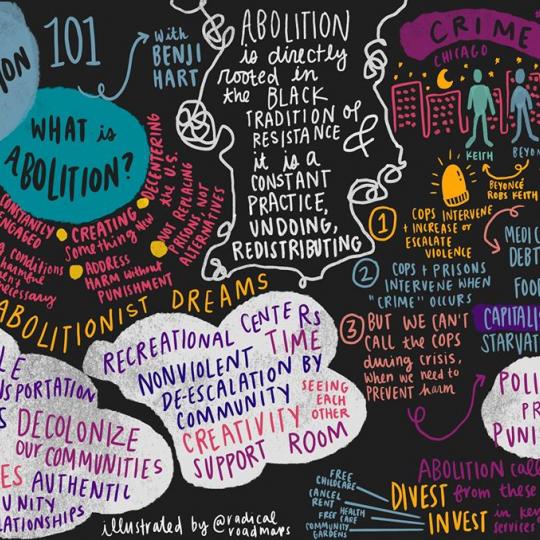 ON
101
with
BENJI
HART
WHAT is
ABOLITION?
CONSTANTLY
ENGAGED
conditions
harmful
necessary
CREATING
Something New
ADDRESS
HARM without
PUNISHMENT
DECENTERING
the U.S.
NOT REPLACING
PRISONS NOT
ALTERNATIVES
ABOLITION
is directly
rooted in
the BLACK
TRADITION of
RESISTANCE &
it is a
CONSTANT
PRACTICE,
UNDOING,
REDISTRIBUTING
CRIME
CHICAGO
KEITH
BEYON
BEYONCÉ
ROBS KEITH
1 COPS INTERVENE
+ INCREASE or
ESCALATE
VIOLENCE
2 COPS + PRISONS
INTERVENE WHEN
"CRIME" OCCURS
3 BUT WE CAN'T
CALL the COPS
during crisis,
when we need to
PREVENT harm
MEDIC
DEBT
FOO
CAPITALIS
STARVAT
POLI
PR
PUNI
ABOLITIONIST DREAMS
LE
NSPORTATION
S DECOLONIZE
OUR COMMUNITIES
ES AUTHENTIC
UNITY
LATIONSHIPS
RECREATIONAL CENTERS
TIME
NONVIOLENT
DE-ESCALATION BY
COMMUNITY
SEEING
EACH
OTHER
CREATIVITY
SUPPORT ROOM
ABOLITION call
DIVEST from these
INVEST in key
services
FREE
CHILDCARE
CANCEL
RENT
FREE HEALTH
CARE
COMMUNITY
GARDENS
illustrated by @radical
roadmaps